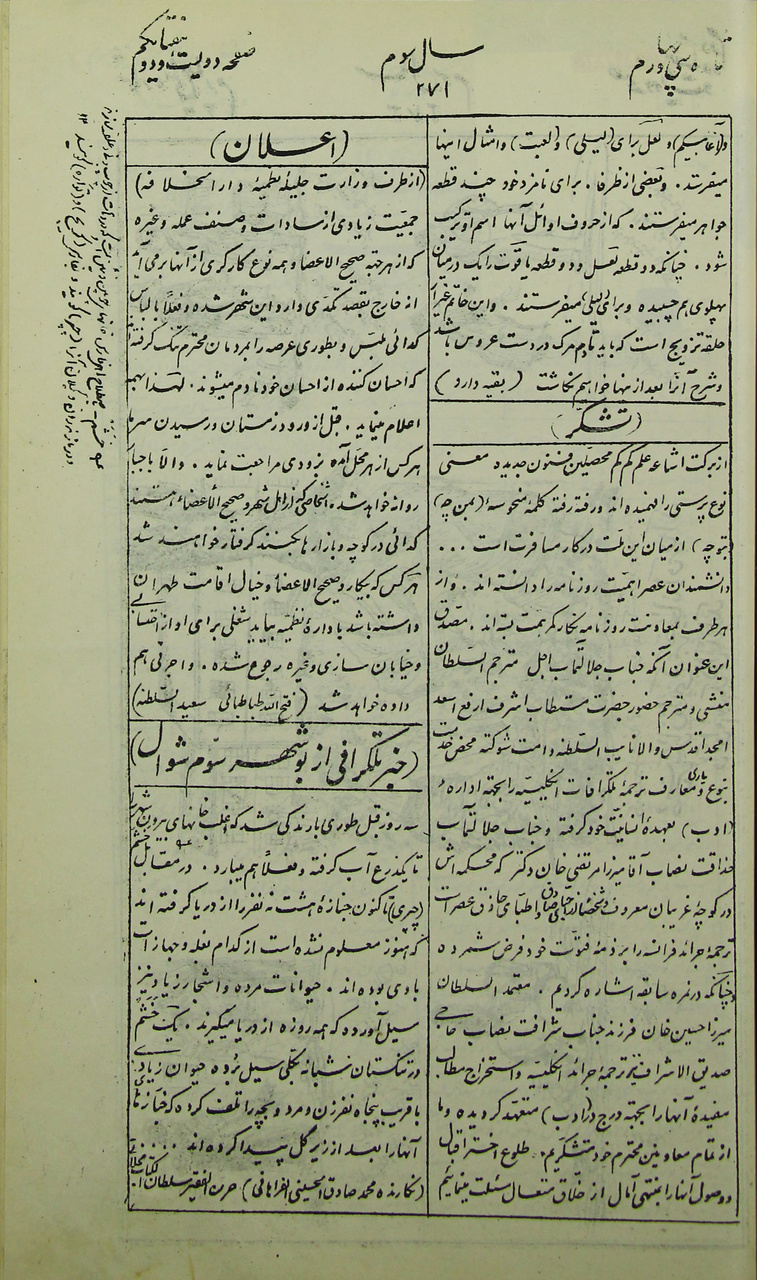 سال سوم
۲۷۱
صفحه دویست و دوم
و امثال اینها
میفرستد . و بعضی از ظرفا . برای نامزد خود چند قطعه
جواهر میفرستند . که از حروف اوائل آنها اسم او ترکیب
شود . چنانکه دو قطعه لعل و دو قطعه یاقوت را یک در میان
پهلوی هم چسبیده و برای لیلی میفرستند . و این خاتم
حلقه تزویج است که باید تا دم مرگ در دست عروس باشد
و شرح آنرا بعد از منها خواهیم نگاشت ( بقیه دارد )
( تشکر )
از برکت اشاعه علم کم کم محصلین فنون جدیده معنی
نوع پرستی را فهمیده اند و رفته رفته کلمه منحوسه (بمن چه)
(بتو چه) از میان این ملت در کار مسافرت است ...
دانشمندان عصر اهمیت روزنامه را دانسته اند . و از
هر طرف بمعاونت روزنامه نگار کمر همت بسته اند . مصدق
این عنوان آنکه جناب جلالتمآب اجل مترجم السلطان
منشی و مترجم حضور حضرت مستطاب اشرف ارفع اسعد
امجد اقدس والا نایب السلطنه دامت شوکته محض خدمت
بنوع و معارف ترجمه تلگرافات انگلیسیه را بجهة اداره
(ادب) بعهده انسانیت خود گرفته و جناب جلالتمآب
حذاقت نصاب آقا میرزا مرتضی خان دکتر که محکمه اش
در کوچه غریبان معروف و اطبای حاذق عصر است
ترجمه جرائد فرانسه را بر ذمه فتوت خود فرض شمرده
چنانکه در نمره سابقه اشاره کردیم . معتمد السلطان
میرزا حسین خان فرزند جناب شرافت نصاب حاجی
صدیق الاشراف نیز ترجمه جرائد انگلیسیه و استخراج مطالب
مفیده آنها را بجهة درج در (ادب) متعهد گردیده و ما
از تمام معاونین محترم خود متشکریم . طلوع اختر اقبال
و وصول آنها را بمنتهی آمال از خلاق متعال مسئلت مینمائیم
(اعلان)
(از طرف وزارت جلیله نظمیه دار الخلافه)
جمعیت زیادی از سادات و صنف عمله و غیره
که از هر جهة صحیح الاعضا و همه نوع کارگری از آنها برمی آید
از خارج بقصد تکدی وارد این شهر شده و فعلا با لباس
گدائی ملبس و بطوری عرصه را بمردمان محترم تنگ گرفته
که احسان کننده از احسان خود نادم میشوند . لهذا بهمه
اعلام مینماید . قبل از ورود زمستان و رسیدن سرما
هر کس از هر محل آمده بزودی مراجعت نماید . و الا باجبار
روانه خواهد شد . اشخاصی که از اهل شهر و صحیح الاعضاء هستند
گدائی در کوچه و بازارها بکنند گرفتار خواهند شد
هر کس که بیکار و صحیح الاعضا و خیال اقامت طهران
داشته باشد باداره نظمیه بیاید شغلی برای او از
و خیابان سازی و غیره رجوع شده . و اجرتی هم
داده خواهد شد (فتح الله طباطبائی سعید السلطنه)
(خبر تلگرافی از بوشهر سوم شوال)
سه روز قبل طوری بارندگی شد که اغلب خانهای بیرون شهر
تا یکذرع آب گرفته و فعلا هم میبارد . در مقابل
تاکنون جنازه هشت نه نفر را از دریا گرفته اند
که هنوز معلوم نشده است از کدام بغله و جهازات
بادی بوده اند . حیوانات مرده و اشجار زیاد نیز
سیل آورده که همه روزه از دریا میگیرند . یک
در تنگستان شبانه بکلی سیل برده حیوان زیادی
با قریب پنجاه نفر زن و مرد و بچه را تلف کرده که جنازه
آنها را بعد از زیر گل پیدا کرده اند
(نگارنده محمد صادق الحسینی الفراهانی)